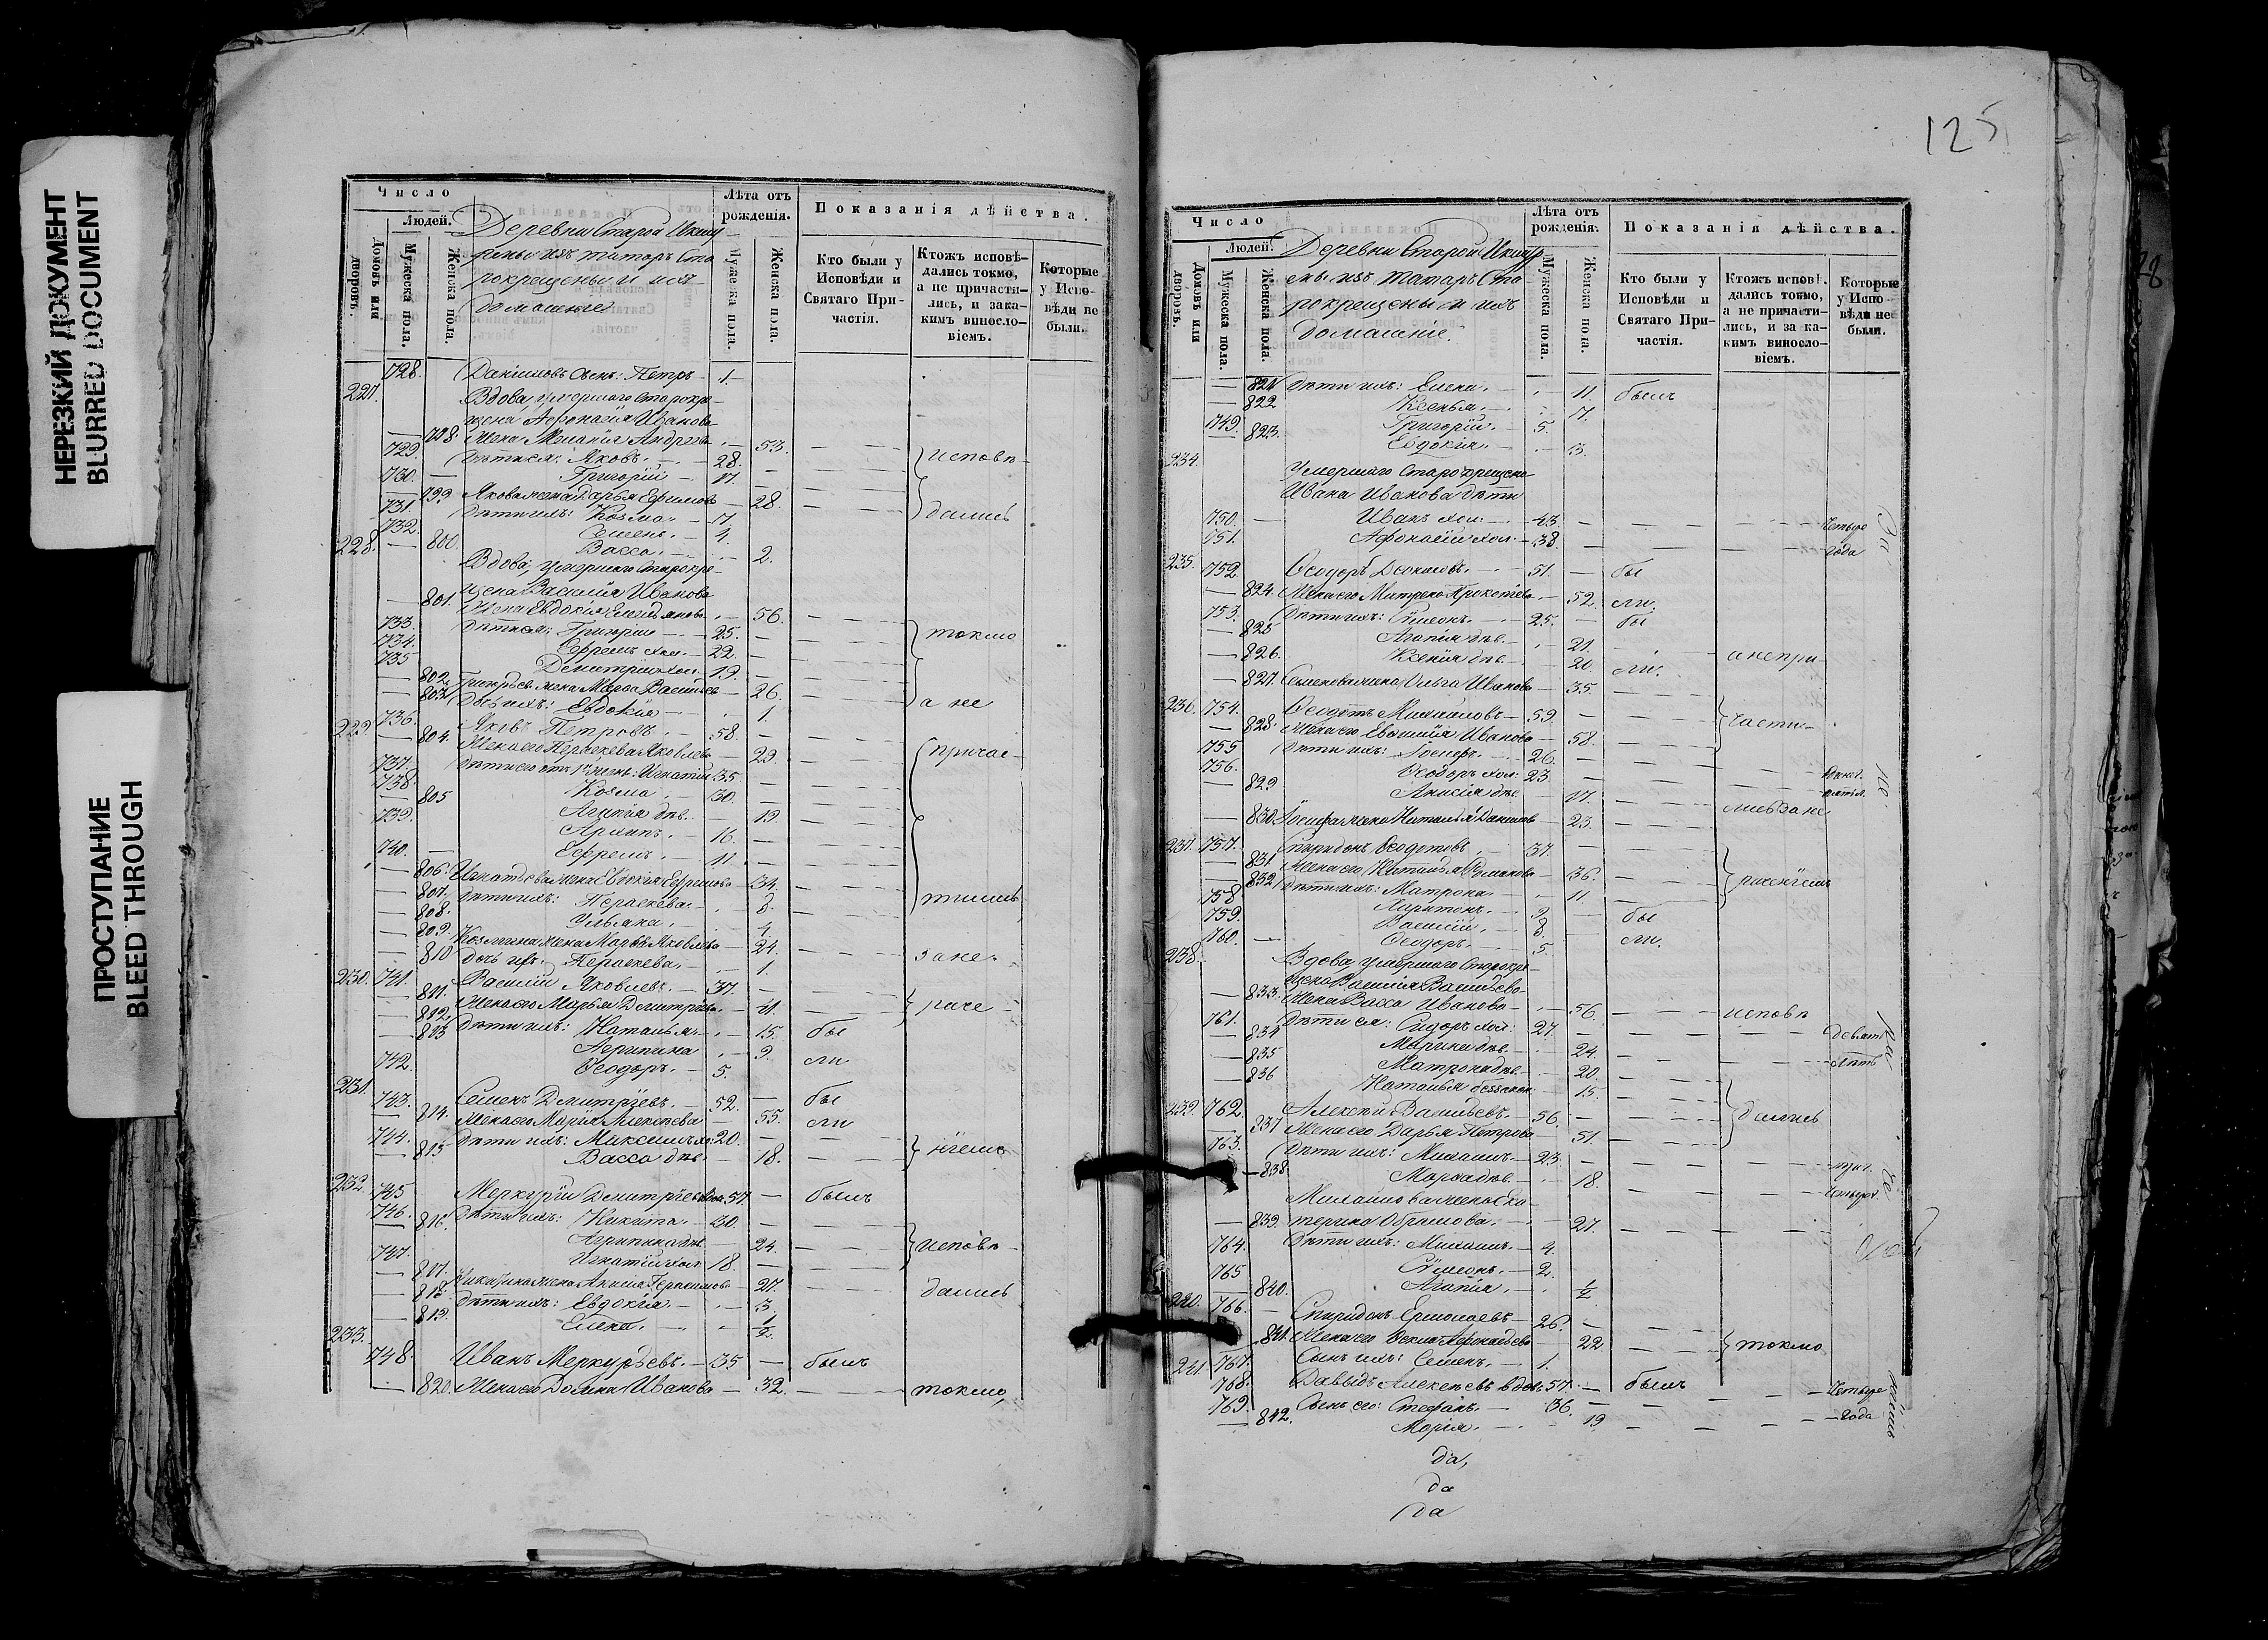 НЕРЕЗКИЙ ДОКУМЕНТ
BLURRED DOCUMENT
ПРОСТУПАНИЕ
BLEED THROUGH
Число
Людей.
Домовъ или дворовъ.
Мужеска пола.
Женска пола.
Деревни Старой Икшур
мы изъ татаръ Ста
рокрещены и ихъ
домашніе
Лѣта отъ рожденія.
Мужеска пола.
Женска пола.
Показанія дѣйства.
Кто были у Исповѣди и Святаго Причастія.
Ктожъ исповѣдались токмо, а не причастились, и за каким винословіемъ.
Которые у Исповѣди не были.
728. Даніиловъ сынъ: Петръ 1.
227. Вдова, умершаго Старокре
щена Афонасія Иванова
798. жена Меланія Андреева 53.
729. Дѣти ея: Яковъ. 28. исповѣ
730. Григорій 17.
799 Якова жена Дарья Ефимова 28.
731. Дѣти ихъ: Козма. 7. дались
732. Семенъ. 4.
800. Васса. 2.
228. Вдова, умершаго Старокре
щена Василія Иванова
801. жена Евдокія 56.
733. Дѣти ея: Григорій 25. токмо
734. Ефремъ хол. 22.
735 Димитрій хол. 19.
802. Григорьева жена Марѳа Васильева 26.
803. Дочь ихъ: Евдокія 1. а не
229 736. Яковъ Петровъ. 58.
804. Жена его Параскева Яковлева 29. причас
737. Дѣти его отъ 1й жены: Игнатій 35
738. Козма. 30.
805 Агапія дѣв. 19.
739. Архипъ. 16.
740. Ефремъ. 11.
806. Игнатьева жена Евдокія Ефимова 34.
807. Дѣти ихъ: Параскева. 8. тились
808. Ульяна. 4.
809. Козмина жена Марѳа Яковлева 24.
810 Дочь ихъ: Параскева. 1. за не
230. 741. Василій Яковлевъ. 37.
811. Жена его Марья Димитріева 41. раче
812. Дѣти ихъ: Наталья. 15. бы
813 Агрипина 9. ли
742. Ѳеодоръ. 5.
231. 743. Семенъ Димитріевъ. 52. бы
814. Жена его Марія Алексѣева 55. ли
744. Дѣти ихъ: Максимъ хо. 20.
815 Васса дѣв. 18. ніемъ
232. 745 Меркурій Димитріевъ 57. былъ
746. Дѣти ихъ: Никита 30.
816. Агрипина дѣв. 24. исповѣ
747. Игнатій хол. 18.
817. Никитина жена Анисья Герасимова 27.
818. Дѣти ихъ: Евдокія 3. дались
819. Елена. ½.
233. 748. Иванъ Меркурьевъ. 35 былъ
820. Жена его Домна Иванова 32. токмо,
125
Число
Людей.
Домовъ или дворовъ.
Мужеска пола.
Женска пола.
Деревни Старой Икшур
мы изъ татаръ Ста
рокрещены и ихъ
домашніе.
Лѣта отъ рожденія.
Мужеска пола.
Женска пола.
Показанія дѣйства.
Кто были у Исповѣди и Святаго Причастія.
Ктожъ исповѣдались токмо, а не причастились, и за каким винословіемъ.
Которые у Исповѣди не были.
821 Дѣти ихъ: Елена. 11. былъ
822 Ксенья. 7.
749. Григорій. 5.
823. Евдокія. 3.
234. Умершаго Старокрещена
Ивана Иванова дѣти
750. Иванъ хол. 43. Четыре
751. Афонасій хол. 38. года
235. 752. Ѳеодоръ 51. бы
824. Жена его Митрена Прокопіева. 52. ли.
753. Дѣти ихъ: Сѵмеонъ. 25. бы
825 Агапія дѣв. 21.
826. Ксенія дѣв. 20. ли. а непри
827. Семенова жена Ольга Иванова 35.
236. 754. Ѳеодотъ Михайловъ 59. части
828. Жена его Евѳимія Иванова 58.
755 Дѣти ихъ: Іосифъ. 26.
756. Ѳеодоръ хол: 23.
829 Анисія дѣв. 17. лись за не
830. Іосифа жена Наталья Данилова 23.
237. 757. Спиридонъ Ѳеодотовъ 37.
831 Жена его Наталья 36. раченіемъ
832 Дѣти ихъ: Матрона 11.
758 Харитонъ. 9. бы
759. Василій. 8.
760. Ѳеодоръ. 5. ли.
238. Вдова, умершаго Старокре
щена Василія Васильева
833. Жена Васса Иванова 56. исповѣ
761. Дѣти ея: Сидоръ хол: 27. девять
834 Марина дѣв. 24. лѣтъ
835 Матрона дѣв. 20.
836 Наталья 15.
239. 762. Алексѣй Васильевъ. 56. дались
837 Жена его Дарья Петрова 51.
763. Дѣти ихъ: Михаилъ. 23. три.
838 Марѳа дѣв. 18.
Михайлова жена Ека
839. терина Обрамова. 27.
764. Дѣти ихъ: Михаилъ. 4.
765 Сѵмеонъ. 2.
840. Агапія. ½
240. 766. Спиридонъ Ермолаевъ 26.
841. Жена его Ѳекла Афонасьева 22. токмо
767. Сынъ ихъ: Семенъ. 1.
241 768. Давыдъ Алексѣевъ вдовъ 57. былъ Четыре
769. Сынъ его: Стефанъ. 36. года
842. Марія. 19
да,
да
да